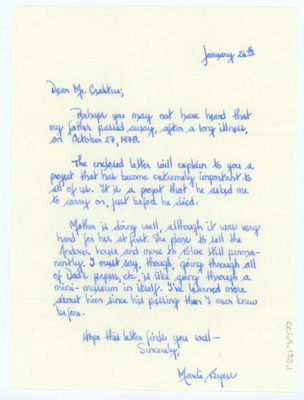 January 26th
Dear Mr. Crabtree;
Perhaps you may not have heard that
my father passed away, after a long illness,
on October 27, 1978.
The enclosed letter will explain to you a
project that has become extremely important to
all of us. It is a project that he asked me
to carry on, just before he died.
Mother is doing well, although it was very
hard for her at first. She plans to sell the
Andover house and move to Blue Hill perma-
nently. I must say, though, going through all
of Dad's papers, etc, is like going through a
mini-museum in itself. I've learned more
about him since his passing than I ever knew
before.
Hope this letter finds you well—
Sincerely,